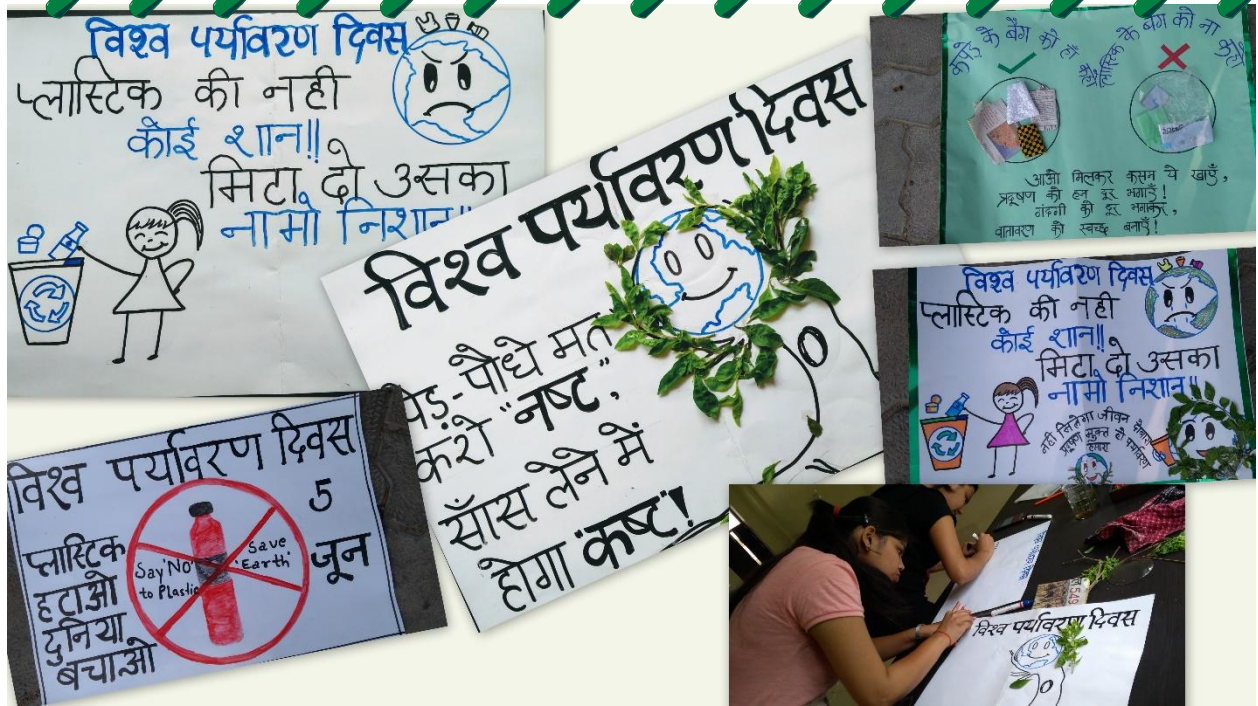 विश्व पर्यावरण दिवस
प्लास्टिक की नही
कोई शान!!
मिटा दो उसका
नामो निशान
विश्व पर्यावरण दिवस
पेड़-पौधे मत
करो "नष्ट",
साँस लेने में
होगा "कष्ट"!
कपड़े के बैग को हाँ
प्लास्टिक के बैग को ना कहो
आओ मिलकर कसम ये खाएँ,
प्रदूषण को हम दूर भगाएँ!
गंदगी को दूर भगाकर,
वातावरण को स्वच्छ बनाएँ!
विश्व पर्यावरण दिवस
प्लास्टिक की नही
कोई शान!!
मिटा दो उसका
नामो निशान!!
नही मिलेगा जीवन
प्रदूषण मुक्त हो पर्यावरण
हमारा
विश्व पर्यावरण दिवस
5
जून
प्लास्टिक
हटाओ
दुनिया
बचाओ
Say 'No'
to Plastic
Save
'Earth'
विश्व पर्यावरण दिवस